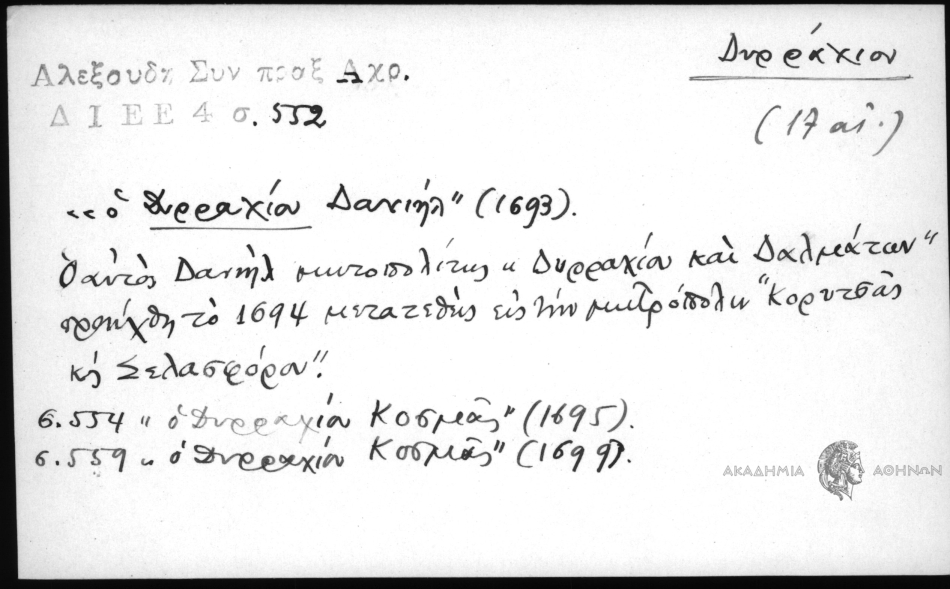 Δυρράχιον
(17 αἰ.)
Αλεξουδη Συν πραξ Αχρ.
ΔΙΕΕ 4 σ. 552
«ὁ Δυρραχίου Δανιήλ" (1693).
Ὁ αὐτὸς Δανιὴλ μητροπολίτης „ Δυρραχίου καὶ Δαλματῶν"
προήχθη τὸ 1694 μετατεθεὶς εἰς τὴν μητρόπολιν "Κορυτσᾶς
κὴ Σελασφόρου".
σ. 554 „ ὁ Δυρραχίου Κοσμᾶς" (1695).
σ. 559 „ ὁ Δυρραχίου Κοσμᾶς" (1699).
ΑΚΑΔΗΜΙΑ ΑΘΗΝΩΝ